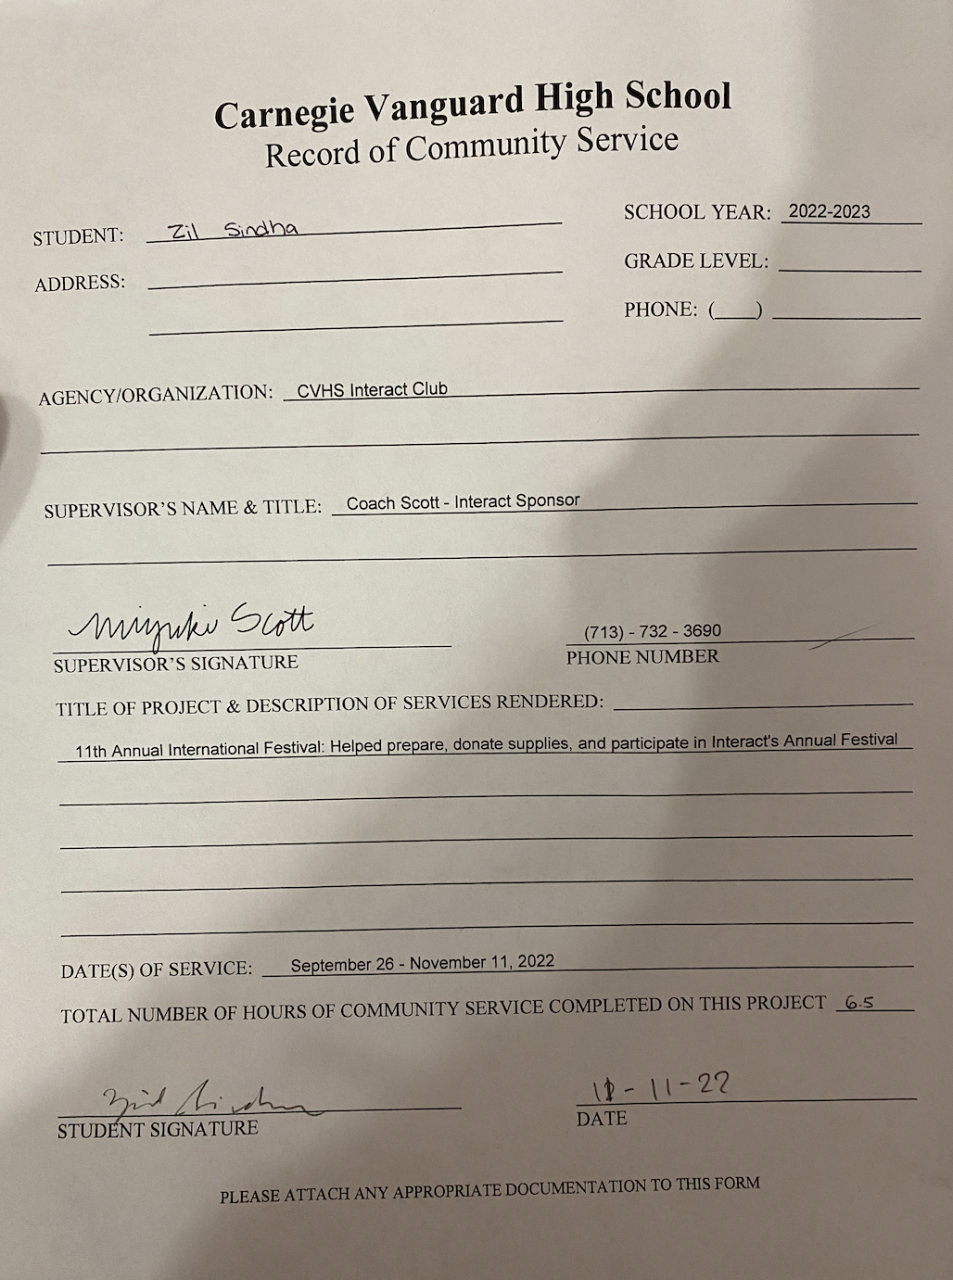 Carnegie Vanguard High School
Record of Community Service
STUDENT: Zil Sindha
SCHOOL YEAR: 2022-2023
ADDRESS:
GRADE LEVEL:
PHONE: (___)
AGENCY/ORGANIZATION: CVHS Interact Club
SUPERVISOR'S NAME & TITLE: Coach Scott - Interact Sponsor
Miyuki Scott
(713) - 732 - 3690
SUPERVISOR'S SIGNATURE
PHONE NUMBER
TITLE OF PROJECT & DESCRIPTION OF SERVICES RENDERED:
11th Annual International Festival: Helped prepare, donate supplies, and participate in Interact's Annual Festival
DATE(S) OF SERVICE: September 26 - November 11, 2022
TOTAL NUMBER OF HOURS OF COMMUNITY SERVICE COMPLETED ON THIS PROJECT 6.5
Zil Sindha
11-11-22
STUDENT SIGNATURE
DATE
PLEASE ATTACH ANY APPROPRIATE DOCUMENTATION TO THIS FORM